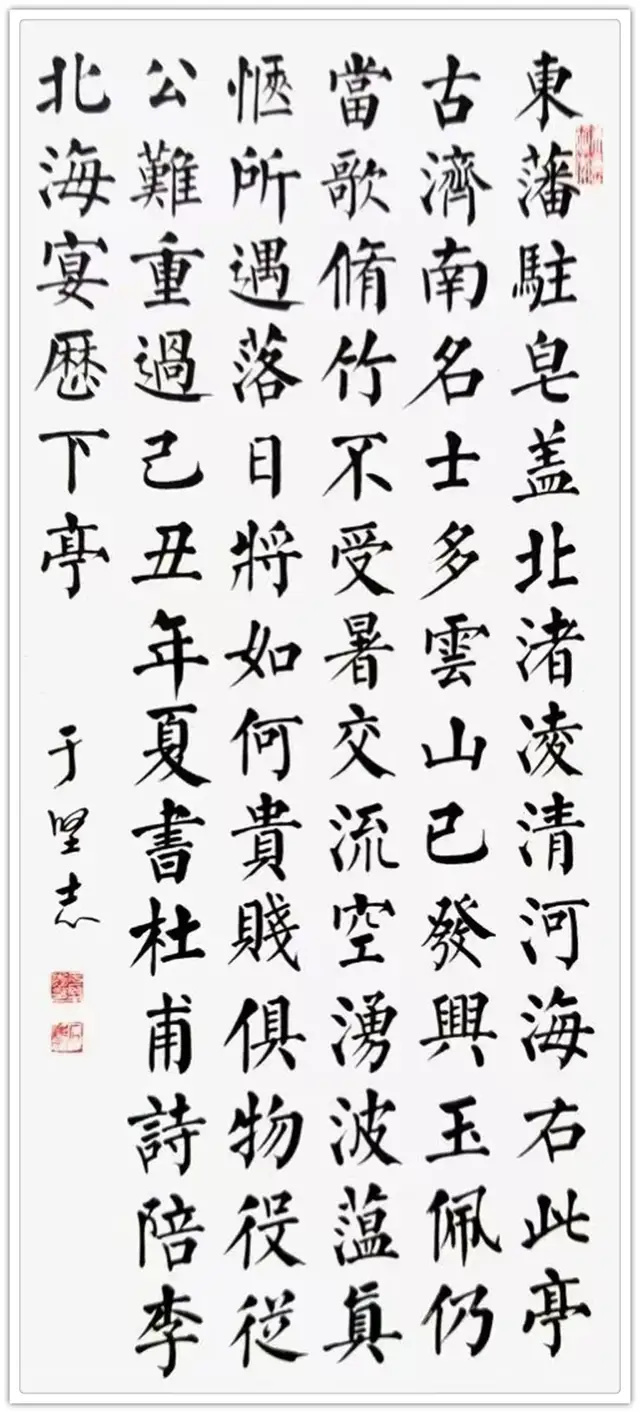 東藩駐皂盖北渚凌清河海右此亭
古濟南名士多雲山已發興玉佩仍
當歌脩竹不受暑交流空湧波蕰眞
愜所遇落日將如何貴賤俱物役從
公難重過己丑年夏書杜甫詩陪李
北海宴歷下亭
于坚志